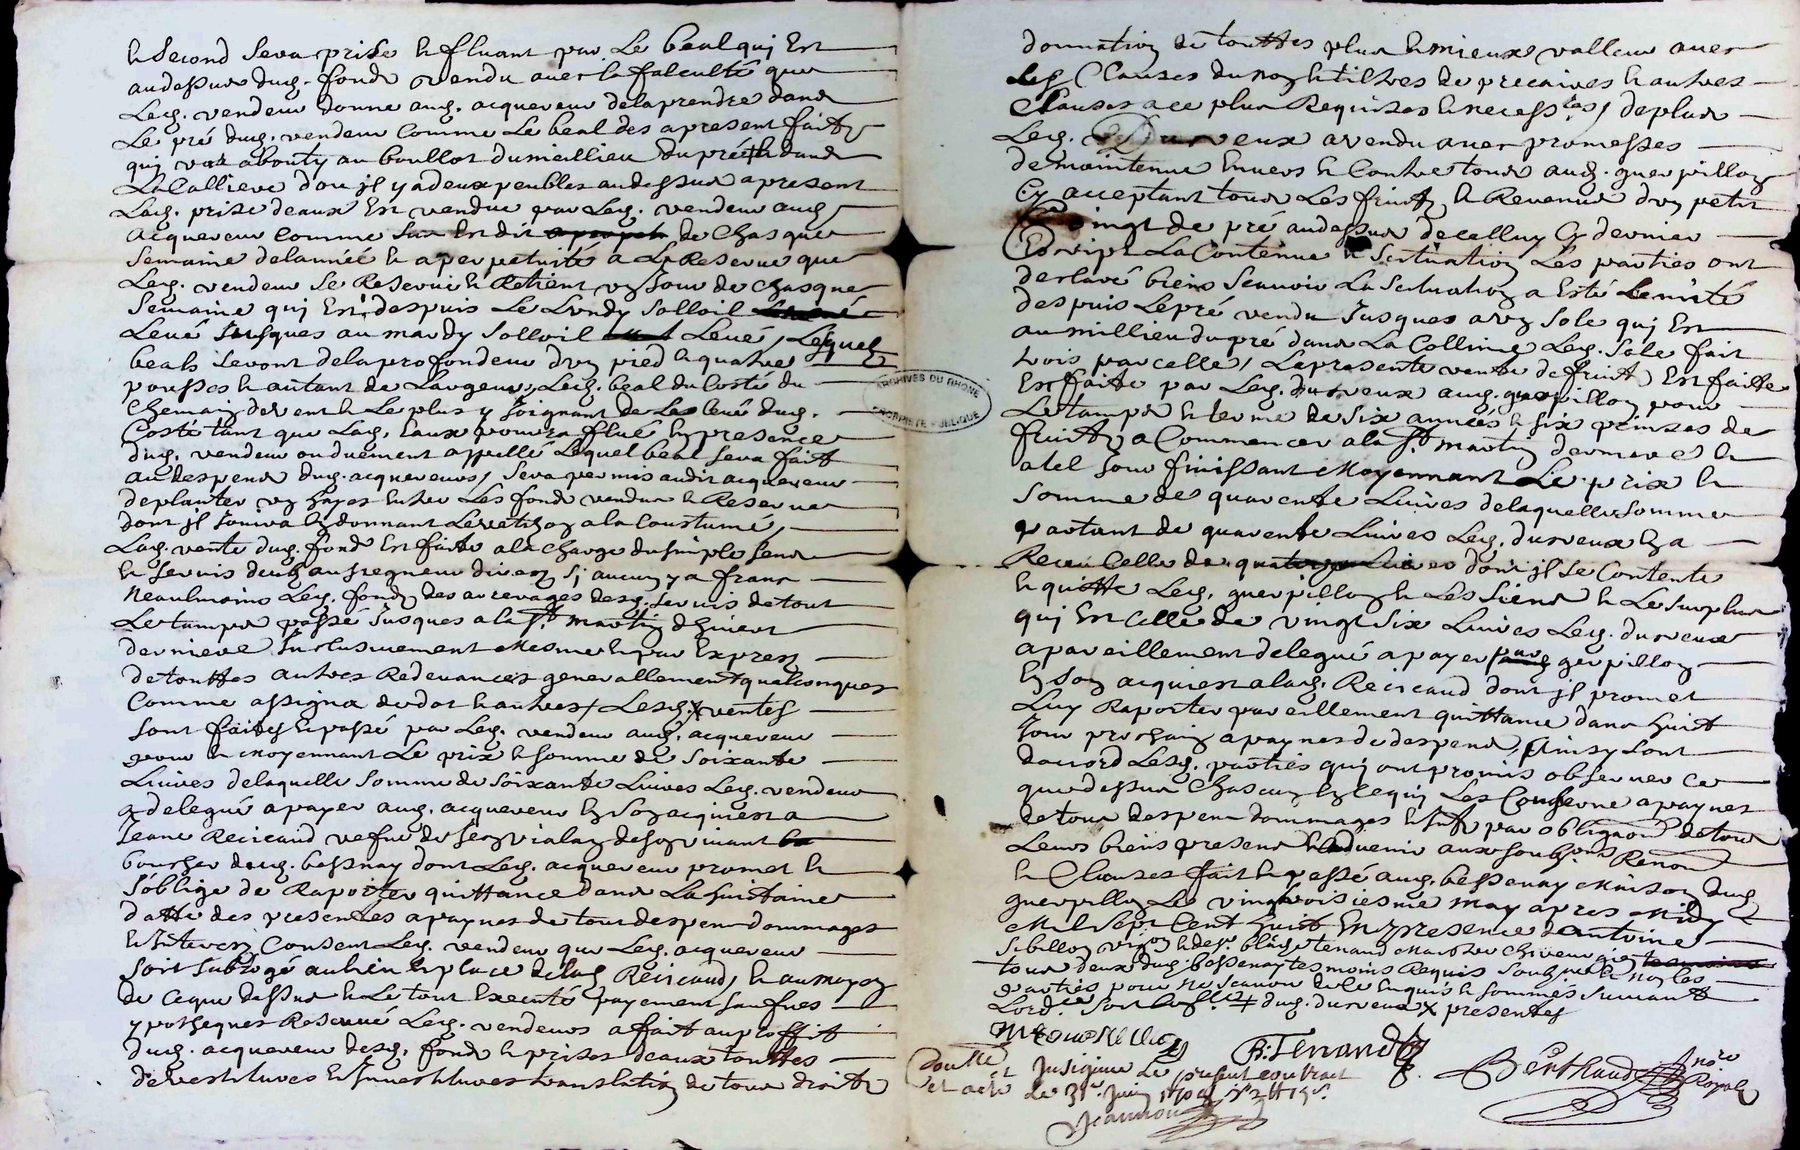 le second sera prise et fluant par le beal quj est
audessus dug. fondz vendu avec la falculté que
Leg. vendeur donne aug. acquereur delaprendre dans
Le pré dug. vendeur comme Le beal des apresent fait
quj va abouty au boullot dumeillieu dupré et dans
La Calliere dou jl y a deux peubles audessus apresent
Lag. prise deaux est vendue par Leg. vendeur aug.
acquereur comme sus est dit de chasque
semaine delannée et a perpetuité a La Reserve que
Leg. vendeur se Reserve et Retient vn jour de chasque
semaine quj est despuis Le Lundy solloil
Levé Jusques au mardy solloil Levé, Lesquels
beals seront delaprofondeur d'vn pied et quatre
pousses et autant de Largeur, Leg. beal du Costé du
chemain devent et Le plus y joignant de Les levé dug.
Costé tant que Lag. Eaux pourra flué En presence
dug. vendeur ou duement appellé Lequel beal sera fait
au despens dug. acquereurs, sera permis audit acquereur
deplanter vn hayes entre Les fondz vendus et Reserve
dont jl jouira En donnant Le retizon a la Coustume,
Lag. vente dug. fondz est faite ala charge dusimple sens
et servis deub au seigneur direct sj aucun y a franc
neaulmoins Leg. fondz des arrerages desg. servis detout
Le tamps passé Jusques a la St. martin d'hivert
derniere Inclusivement mesme et par Exprez
detouttes autres Redevances generallement quelconques
Comme assigna de dot et autres, Lesg. ventes
sont faites et passé par Leg. vendeur aug. acquereur
pour et moyennant Le prix et somme de soixante
Livres delaquelle somme de soixante Livres Leg. vendeur
a delegué apayer aug. acquereur En son acquiest a
Jeane Reiriaud vefve de
bourher deug. bessnay dont Leg. acquereur promet et
s'oblige de Raporter quittance dans La huitaine
datte des presentes apaynes de tous despens dommages
et Interest, Consent Leg. vendeur que Leg. acquereur
soit subrogé aulieu et place delag. Reiriaud, et aumoyen
de ceque dessus et Le tout Executé payement saufses
ypotheques Reservé Leg. vendeurs a fait auproffit
dug. acquereur desg. fondz et prises deaux touttes
devestitures et Investitures translation de tous droits
donnation de touttes plus et mieux valleur avec
Les Clauses du noz et tiltres de precaires et autres
Clauses a ce plus Requises et necessres, deplus
Leg. Durveux a vendu avec promesses
demaintenue Envers et Contre tous aug. guerpillon
Cy acceptant tous Les fruitz et Revenus d'vn petit
Coingt de pré audessus decelluy Cy dernier
Escript La Contenue et scituation Les parties ont
declaré biens scavoir La scituation a Esté Limité
despuis Le pré vendu Jusques a vn sole quj est
aumillieu dupré dans La Colline Leg. sole fait
trois parcelle, La presente vente de fruit Est faitte
Est faite par Leg. durveux aug. guerpillon pour
Le tamps et terme de six années et six prinses de
fruitz a Commencer ala St. martin derniere et
atel jour finissant moyennant Le prix et
somme de quarente Livres delaquelle somme
partant de quarente Livres Leg. durveux En a
Receu Celle de quatorze Livres dont jl se Contente
et quitte Leg. guerpillon et Les siens et Le surplus
quj est Celle de vingt six Livres Leg. durveux
apareillement delegué apayer par gerpillon
En son acquiest alag. Reiriaud dont jl promet
Luy Raporter pareillement quittance dans huit
Jour prochain apaynes de despens, Ainsy sont
daccord Lesg. parties quj ont promis observer Ce
que dessus Chascun En Cequj Les Conserne apaynes
de tous despens dommages et Intz par obligaon de tous
Leurs biens presens et advenir aux soubzons Renon
et Clauses fait et passé aug. bessenay maison dug.
guerpillon Le vingtroisiesme May apres Midy
Mil sept Cent huit En presence d'antoine
Sibellon vigon et de sr. blaise tenand maistre chirurgien
tous deux dug. bessenay tesmoins Requis soubznés et non les
parties pour ne scavoir de ce Enquis et sommés suivant
Lordce dug. durveux presentes
B: Tenand
Berthaud Nore Royal
Controllé et Insignue Le present contract
et acte Le 3e. Juin 1708
Jeannou
ARCHIVES DU RHONE
PROPRIETE PUBLIQUE